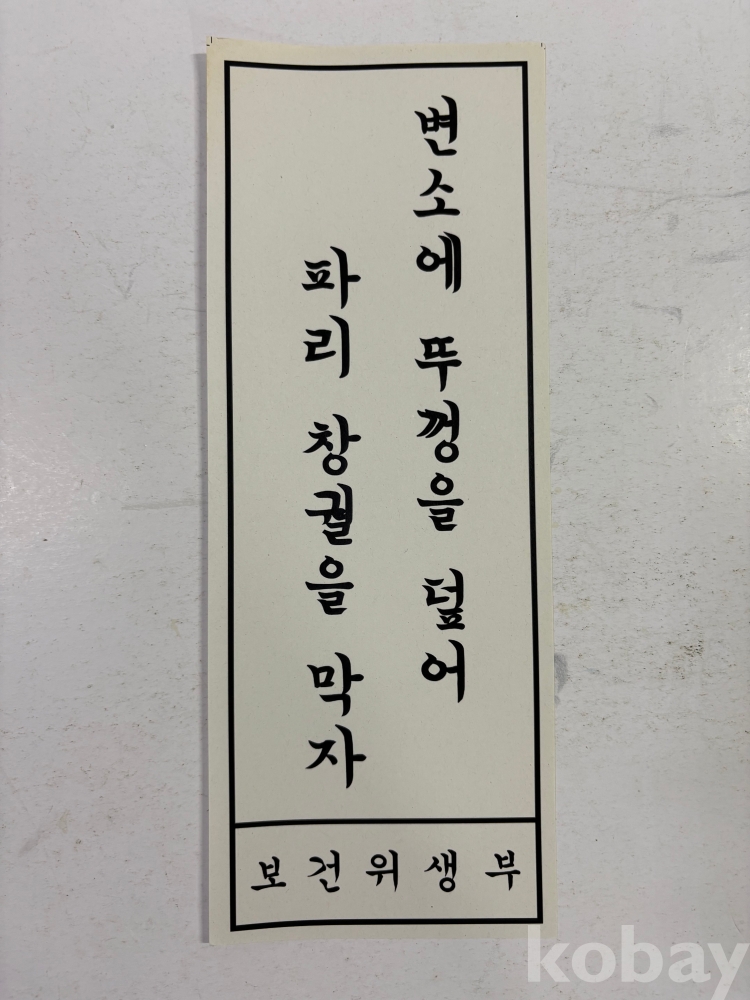 변소에 뚜껑을 덮어
파리 창궐을 막자
보건위생부
kobay